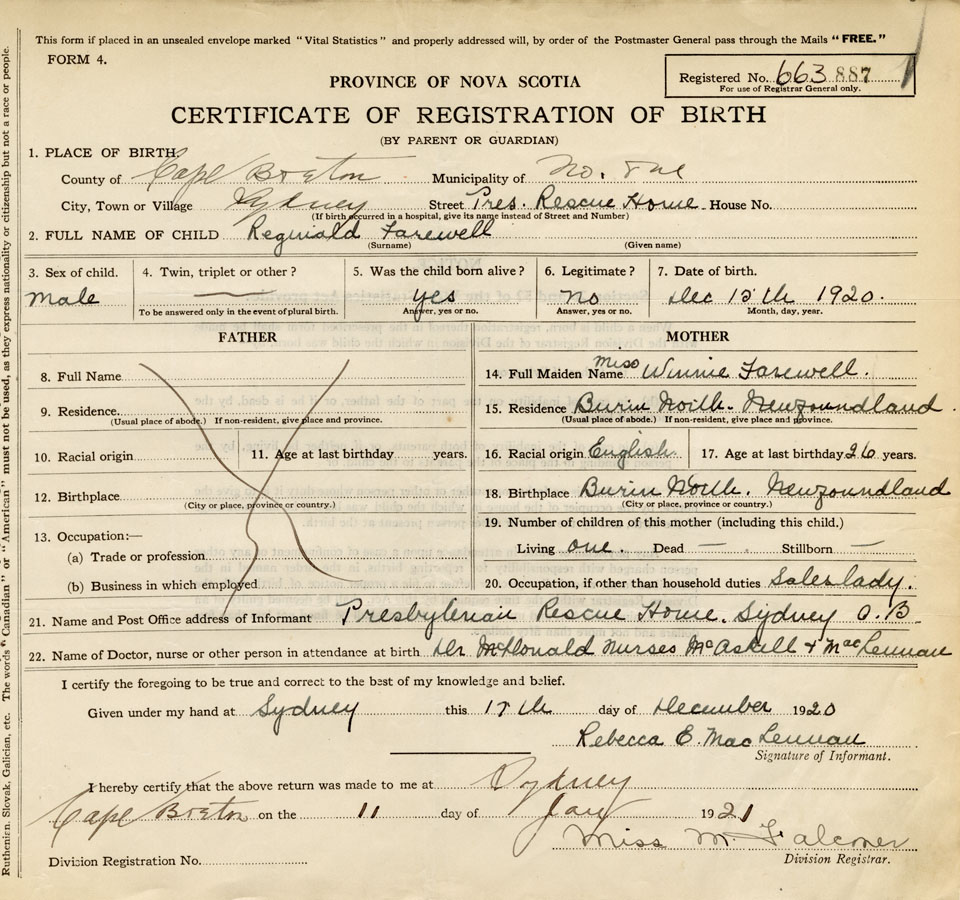 This form if placed in an unsealed envelope marked "Vital Statistics" and properly addressed will, by order of the Postmaster General pass through the Mails "FREE."
FORM 4.
Registered No. 663 887
For use of Registrar General only.
PROVINCE OF NOVA SCOTIA
CERTIFICATE OF REGISTRATION OF BIRTH
(BY PARENT OR GUARDIAN)
1. PLACE OF BIRTH
County of Cape Breton Municipality of No.
City, Town or Village Sydney Street Pres. Rescue Home House No.
(If birth occurred in a hospital, give its name instead of Street and Number)
2. FULL NAME OF CHILD Reginald Farewell
(Surname) (Given name)
3. Sex of child. 4. Twin, triplet or other? 5. Was the child born alive? 6. Legitimate? 7. Date of birth.
Male — yes No Dec 15th 1920.
To be answered only in the event of plural birth. Answer, yes or no. Answer, yes or no. Month, day, year.
FATHER MOTHER
8. Full Name
14. Full Maiden Name Miss Winnie Farewell.
9. Residence.
15. Residence Burin North. Newfoundland.
(Usual place of abode.) If non-resident, give place and province.
(Usual place of abode.) If non-resident, give place and province.
10. Racial origin 11. Age at last birthday years.
16. Racial origin English. 17. Age at last birthday 26 years.
12. Birthplace
18. Birthplace Burin North. Newfoundland
(City or place, province or country.)
(City or place, province or country.)
13. Occupation:—
(a) Trade or profession
(b) Business in which employed
19. Number of children of this mother (including this child.)
Living one. Dead — Stillborn —
20. Occupation, if other than household duties Saleslady.
21. Name and Post Office address of Informant Presbyterian Rescue Home. Sydney C.B.
22. Name of Doctor, nurse or other person in attendance at birth Dr McDonald Nurses McAskill + MacLennan
I certify the foregoing to be true and correct to the best of my knowledge and belief.
Given under my hand at Sydney this 17th day of December 1920
Rebecca E. MacLennan
Signature of Informant.
I hereby certify that the above return was made to me at Sydney
Cape Breton on the 11 day of Jany 1921
Miss M Falconer
Division Registration No.
Division Registrar.
Ruthenian, Slovak, Galician, etc. The words "Canadian" or "American" must not be used, as they express nationality or citizenship but not a race or people.